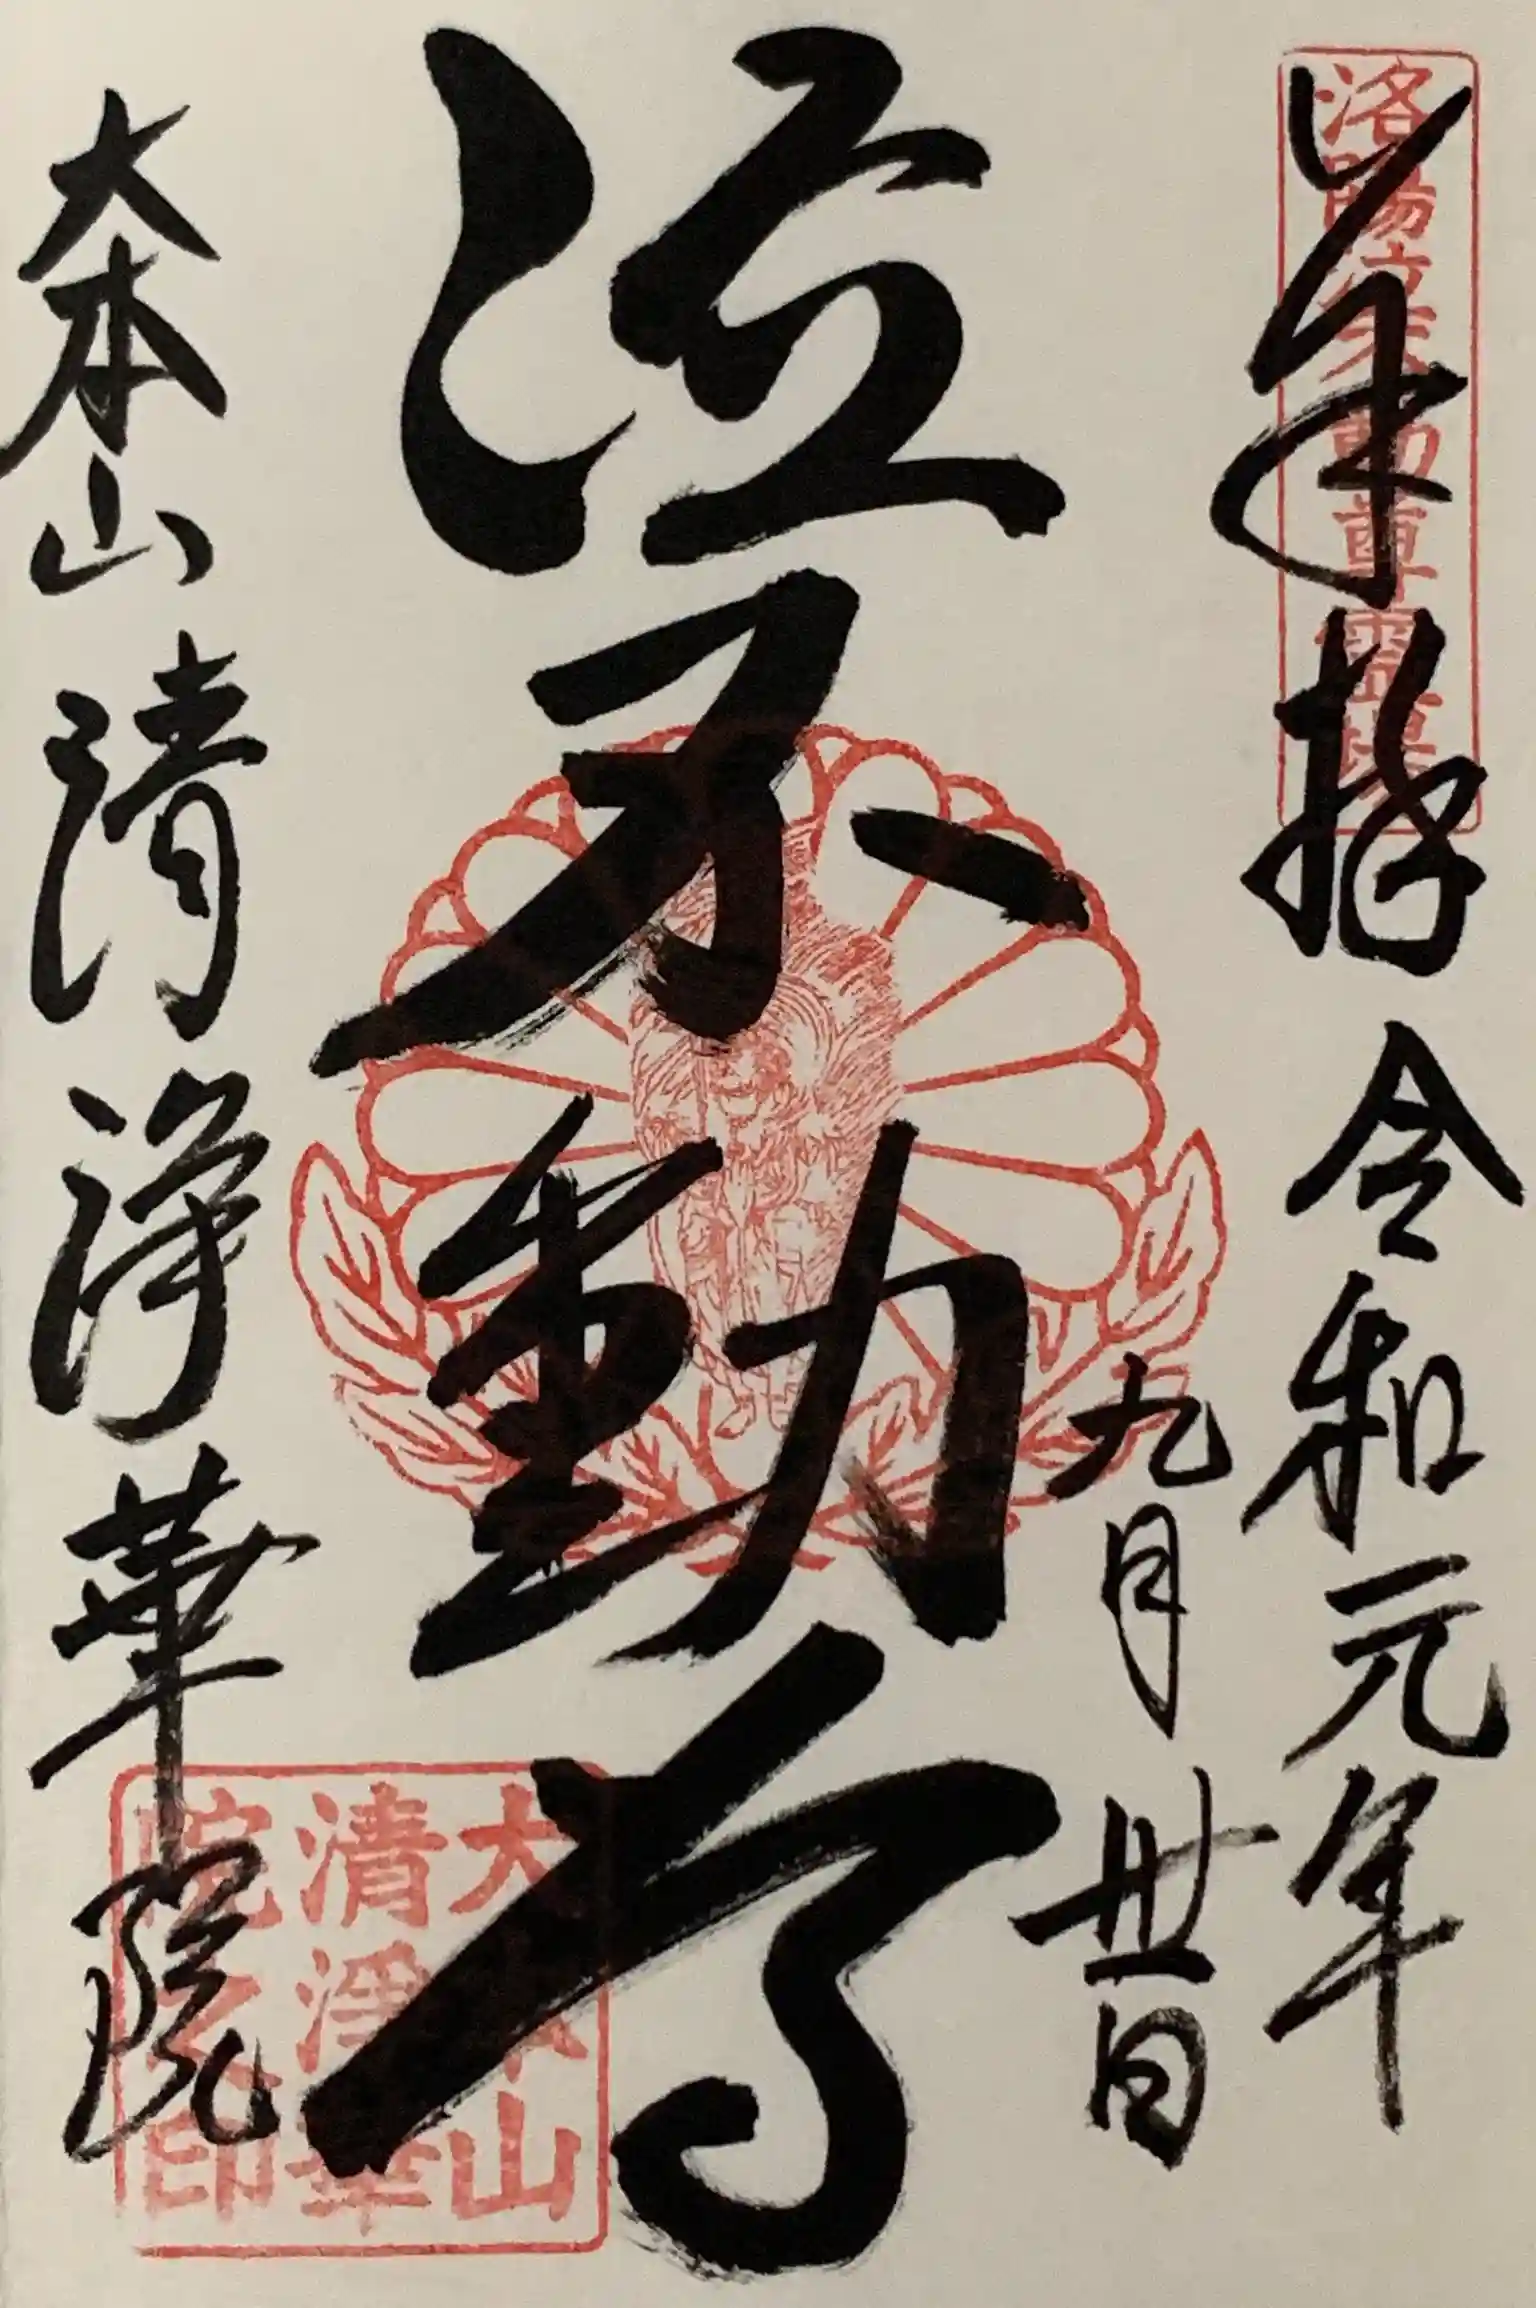 洛陽泣不動尊霊場
奉拝 令和元年
九月丗日
泣不動尊
大本山 清浄華院
大本山
清淨華
院之印